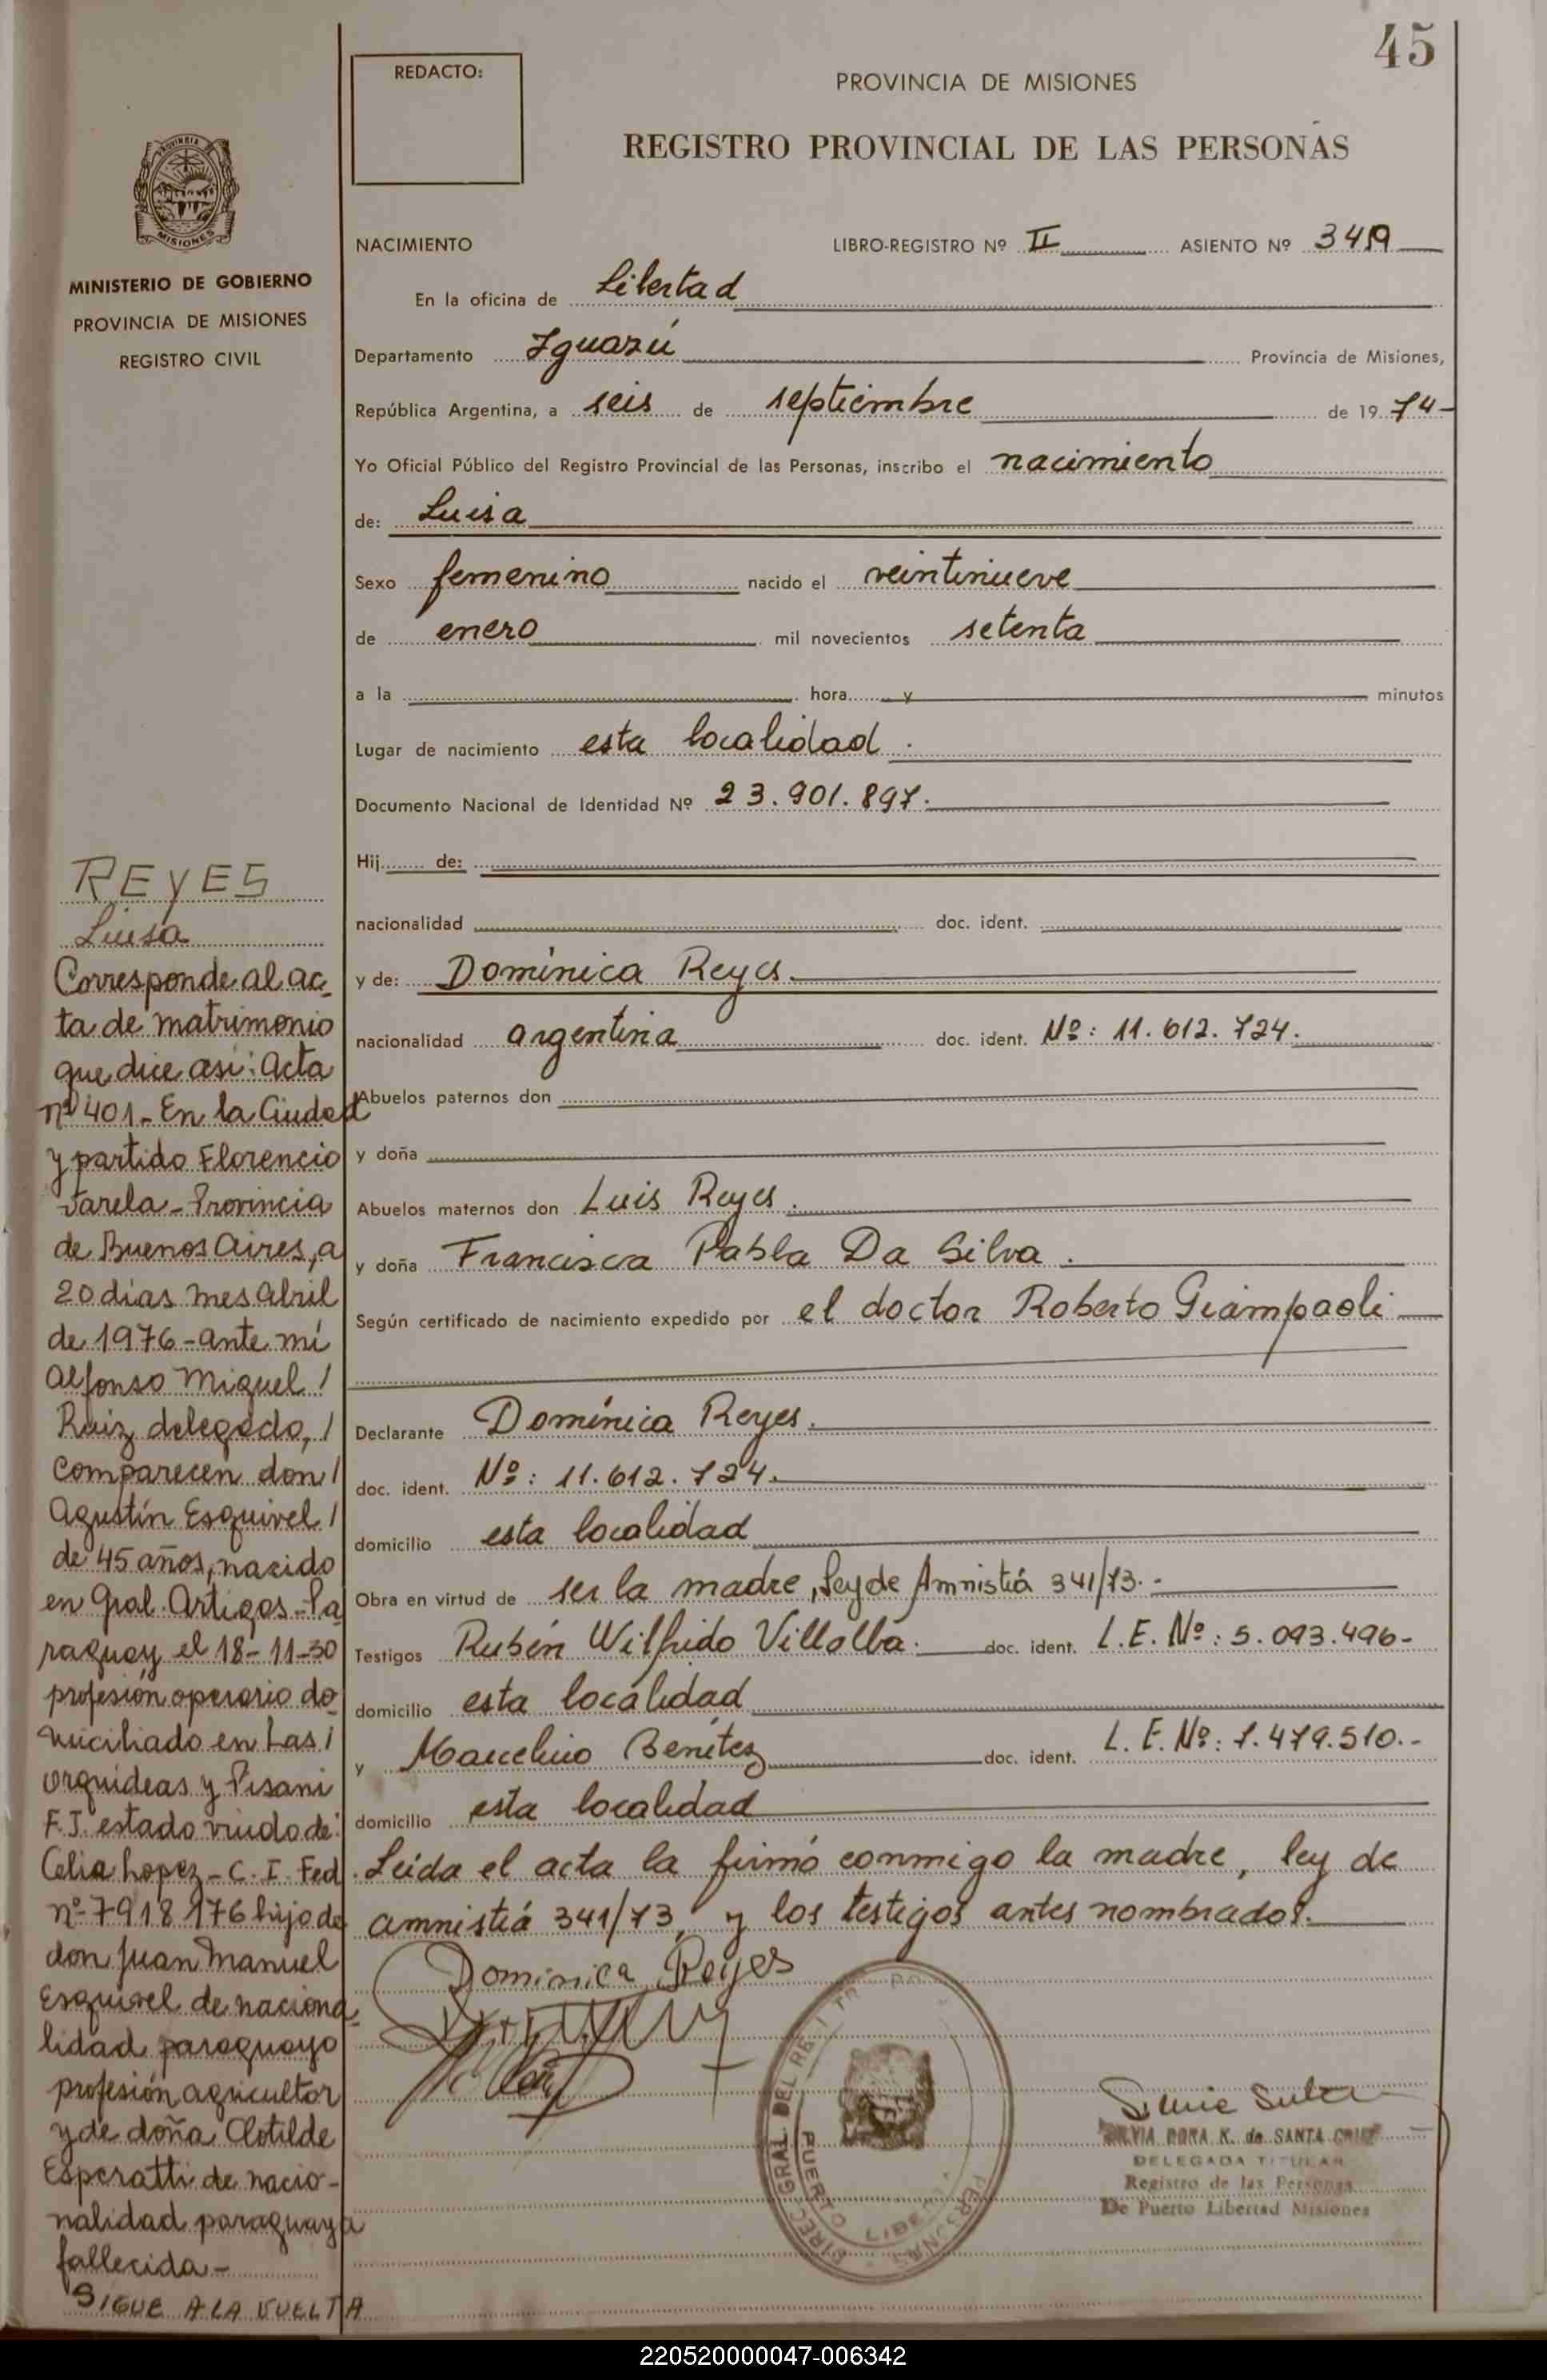 45
REDACTO:
PROVINCIA DE MISIONES
REGISTRO PROVINCIAL DE LAS PERSONAS
PROVINCIA DE
MISIONES
MINISTERIO DE GOBIERNO
PROVINCIA DE MISIONES
REGISTRO CIVIL
NACIMIENTO LIBRO-REGISTRO Nº II ASIENTO Nº
En la oficina de Libertad
Departamento Iguazú Provincia de Misiones,
República Argentina, a seis de septiembre de 1974-
Yo Oficial Público del Registro Provincial de las Personas, inscribo el nacimiento
de: Luisa
Sexo femenino nacido el veintinueve
de enero mil novecientos setenta
a la hora y minutos
Lugar de nacimiento esta localidad.
Documento Nacional de Identidad Nº 23.901.897.
Hij de:
nacionalidad doc. ident.
y de: Domínica Reyes.
nacionalidad argentina doc. ident. Nº: 11.612.724.
Abuelos paternos don
y doña
Abuelos maternos don Luis Reyes.
y doña Francisca Pabla Da Silva.
Según certificado de nacimiento expedido por el doctor Roberto Giampaoli
Declarante Domínica Reyes.
doc. ident. Nº: 11.612.724.
domicilio esta localidad
Obra en virtud de ser la madre, Ley de Amnistiá 341/73.-
Testigos Rubén Wilfrido Villalba. doc. ident. L.E. Nº: 5.093.496-
domicilio esta localidad
y Marcelino Benítez doc. ident. L.E. Nº: 7.479.510.-
domicilio esta localidad
Leída el acta la firmó conmigo la madre, ley de
amnistiá 341/73, y los testigos antes nombrados.
Dominica Reyes
DIREC GRAL DEL
PUERTO LIBERTAD
SILVIA DORA K. de SANTA CRUZ
DELEGADA TITULAR
Registro de las Personas
De Puerto Libertad Misiones
REYES
Luisa
Corresponde al ac-
ta de matrimonio
que dice asi: Acta
nº 401- En la Ciudad
y partido Florencio
Varela - Provincia
de Buenos Aires, a
20 días mes Abril
de 1976 - ante mí
Alfonso Miguel /
Ruiz delegado, /
Comparecen don /
Agustín Esquivel /
de 45 años, nacido
en Gral. Artigas - Pa
raguay el 18-11-30
profesión operario do
miciliado en Las /
orquideas y Pisani
F.J. estado viudo de
Celia Lopez - C. I. Fed.
nº 7918176 hijo de
don Juan Manuel
Esquivel de naciona-
lidad paraguayo
profesión agricultor
y de doña Clotilde
Esperatti de nacio-
nalidad paraguaya
fallecida -
SIGUE A LA VUELTA
220520000047-006342